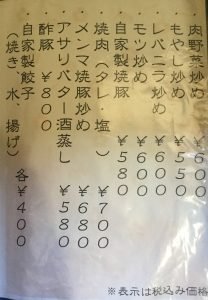 ・肉野菜炒め ¥600
・もやし炒め ¥500
・レバニラ炒め ¥600
・モツ炒め ¥600
・自家製焼豚 ¥580
・焼肉（タレ・塩） ¥700
・メンマ焼豚炒め ¥680
・アサリバター酒蒸し ¥580
・酢豚 ¥800
・自家製餃子
（焼き、水、揚げ） 各¥400
※表示は税込み価格